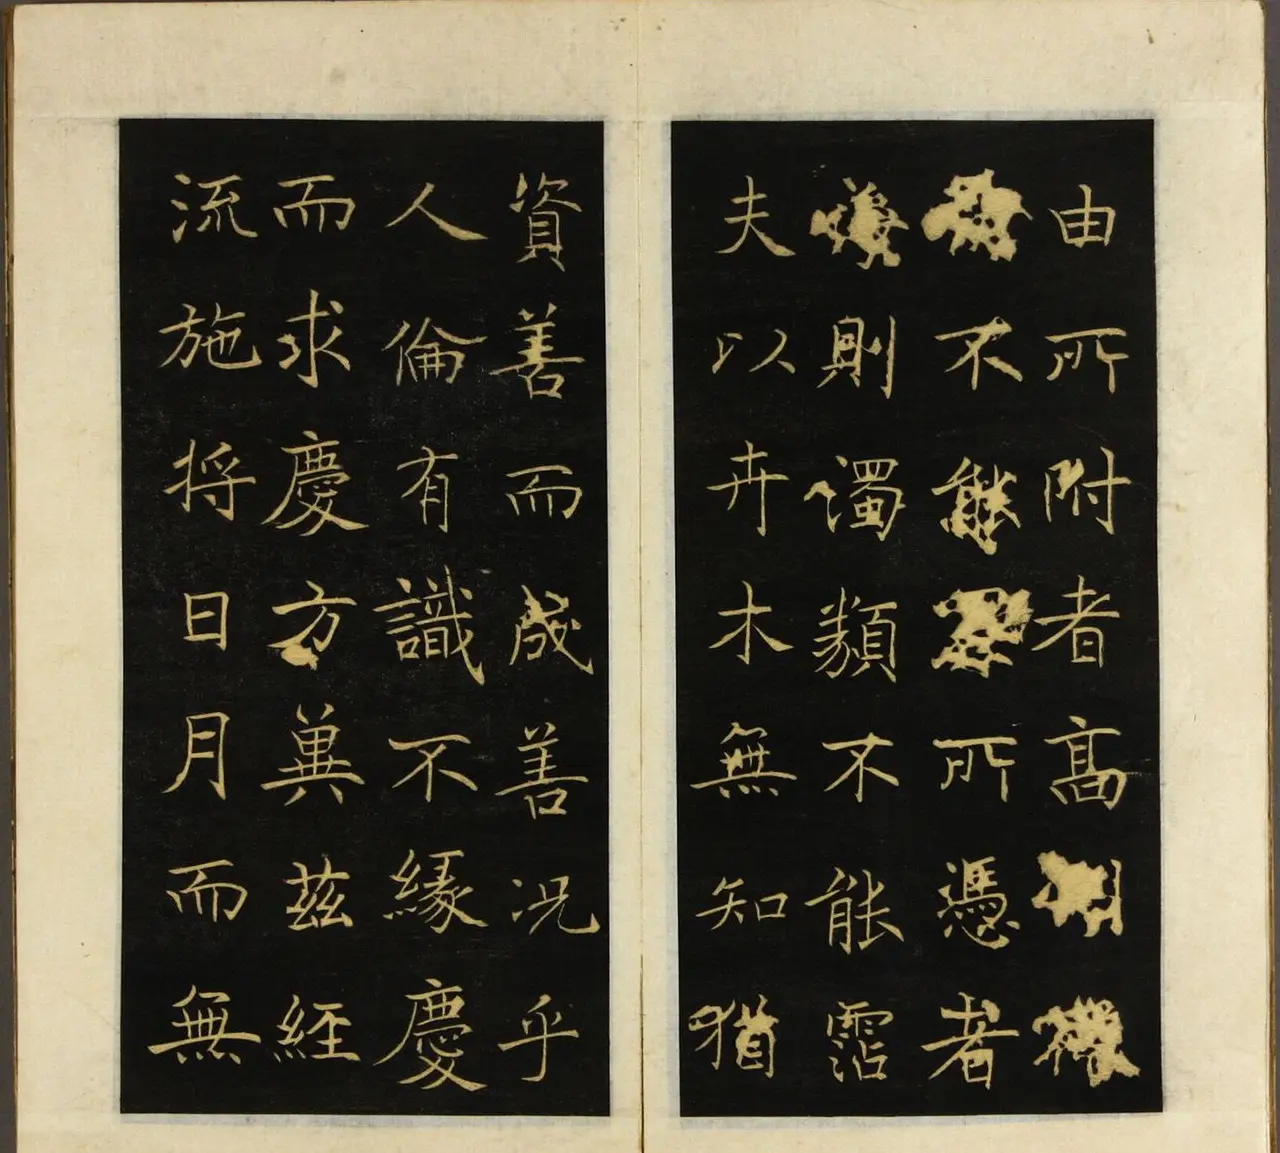 由所附者高
不能所憑者
則濁類不能霑
夫以卉木無知猶
資善而成善况乎
人倫有識不緣慶
而求慶方冀茲經
流施将日月而無